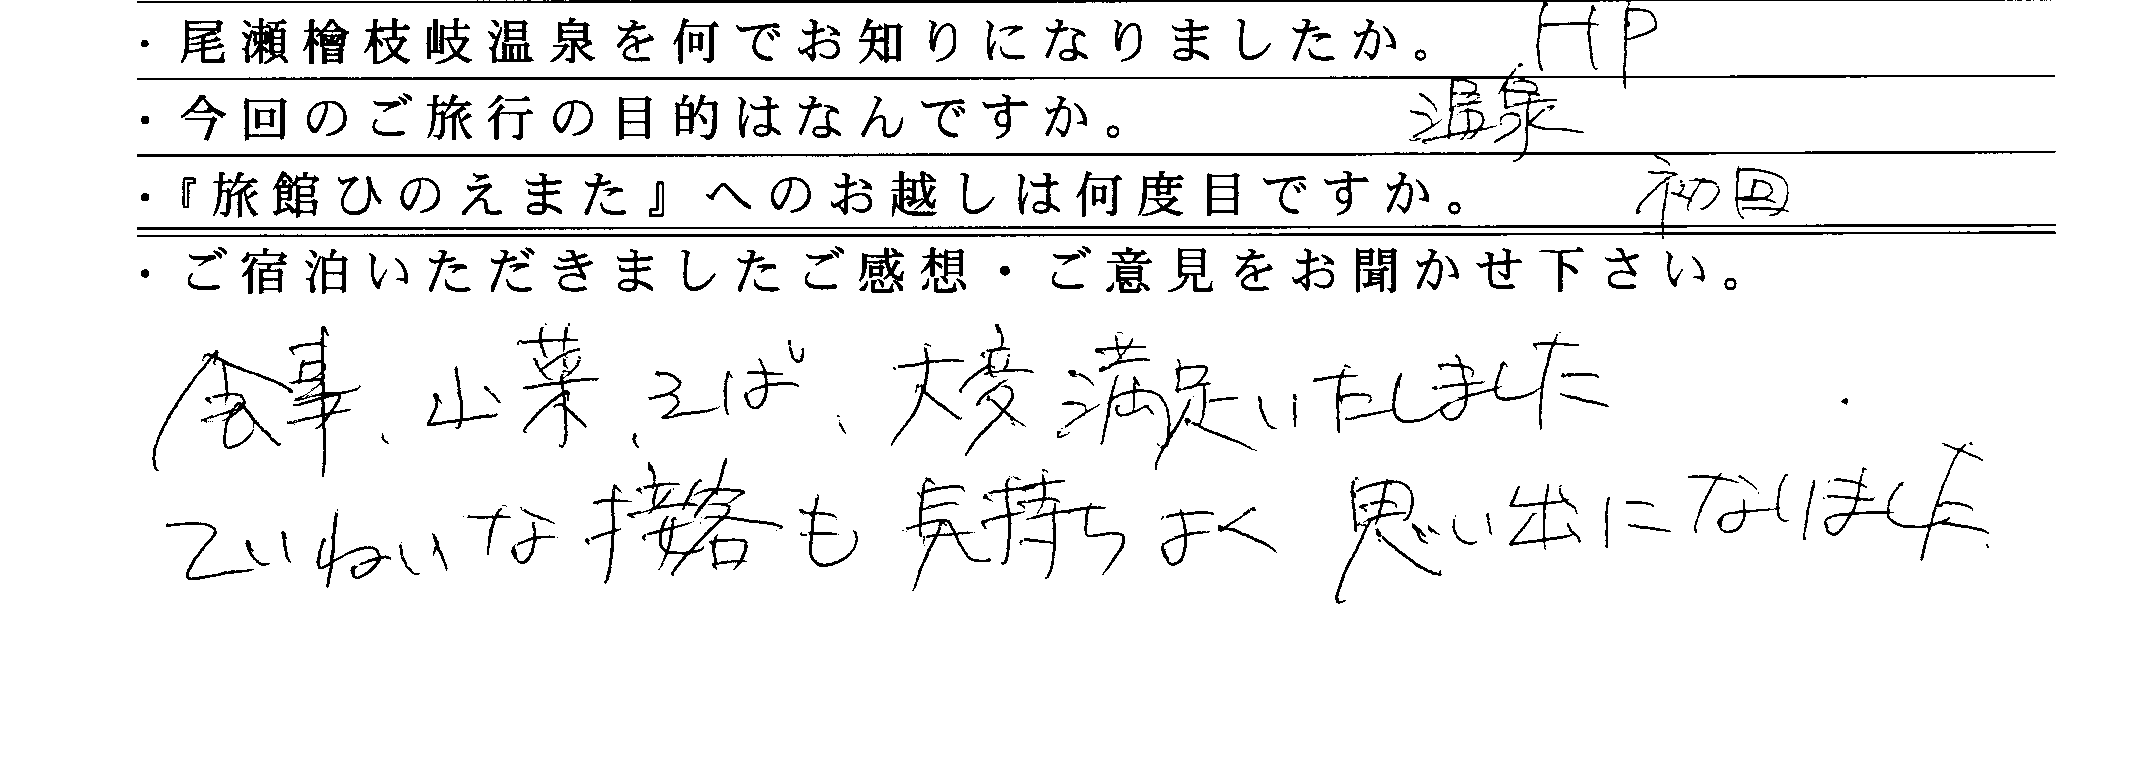 ・尾瀬檜枝岐温泉を何でお知りになりましたか。 HP
・今回のご旅行の目的はなんですか。 温泉
・『旅館ひのえまた』へのお越しは何度目ですか。 初回
・ご宿泊いただきましたご感想・ご意見をお聞かせ下さい。
食事、山菜、そば、大変満足いたしました
ていねいな接客も気持ちよく思い出になりました